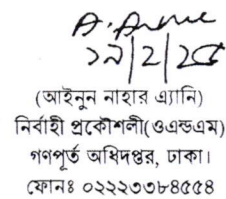 ১৯/2/২৫
(আইনুন নাহার এ্যানি)
নির্বাহী প্রকৌশলী(ওএন্ডএম)
গণপূর্ত অধিদপ্তর, ঢাকা।
ফোনঃ ০২২২৩৩৮৪৫৫৪